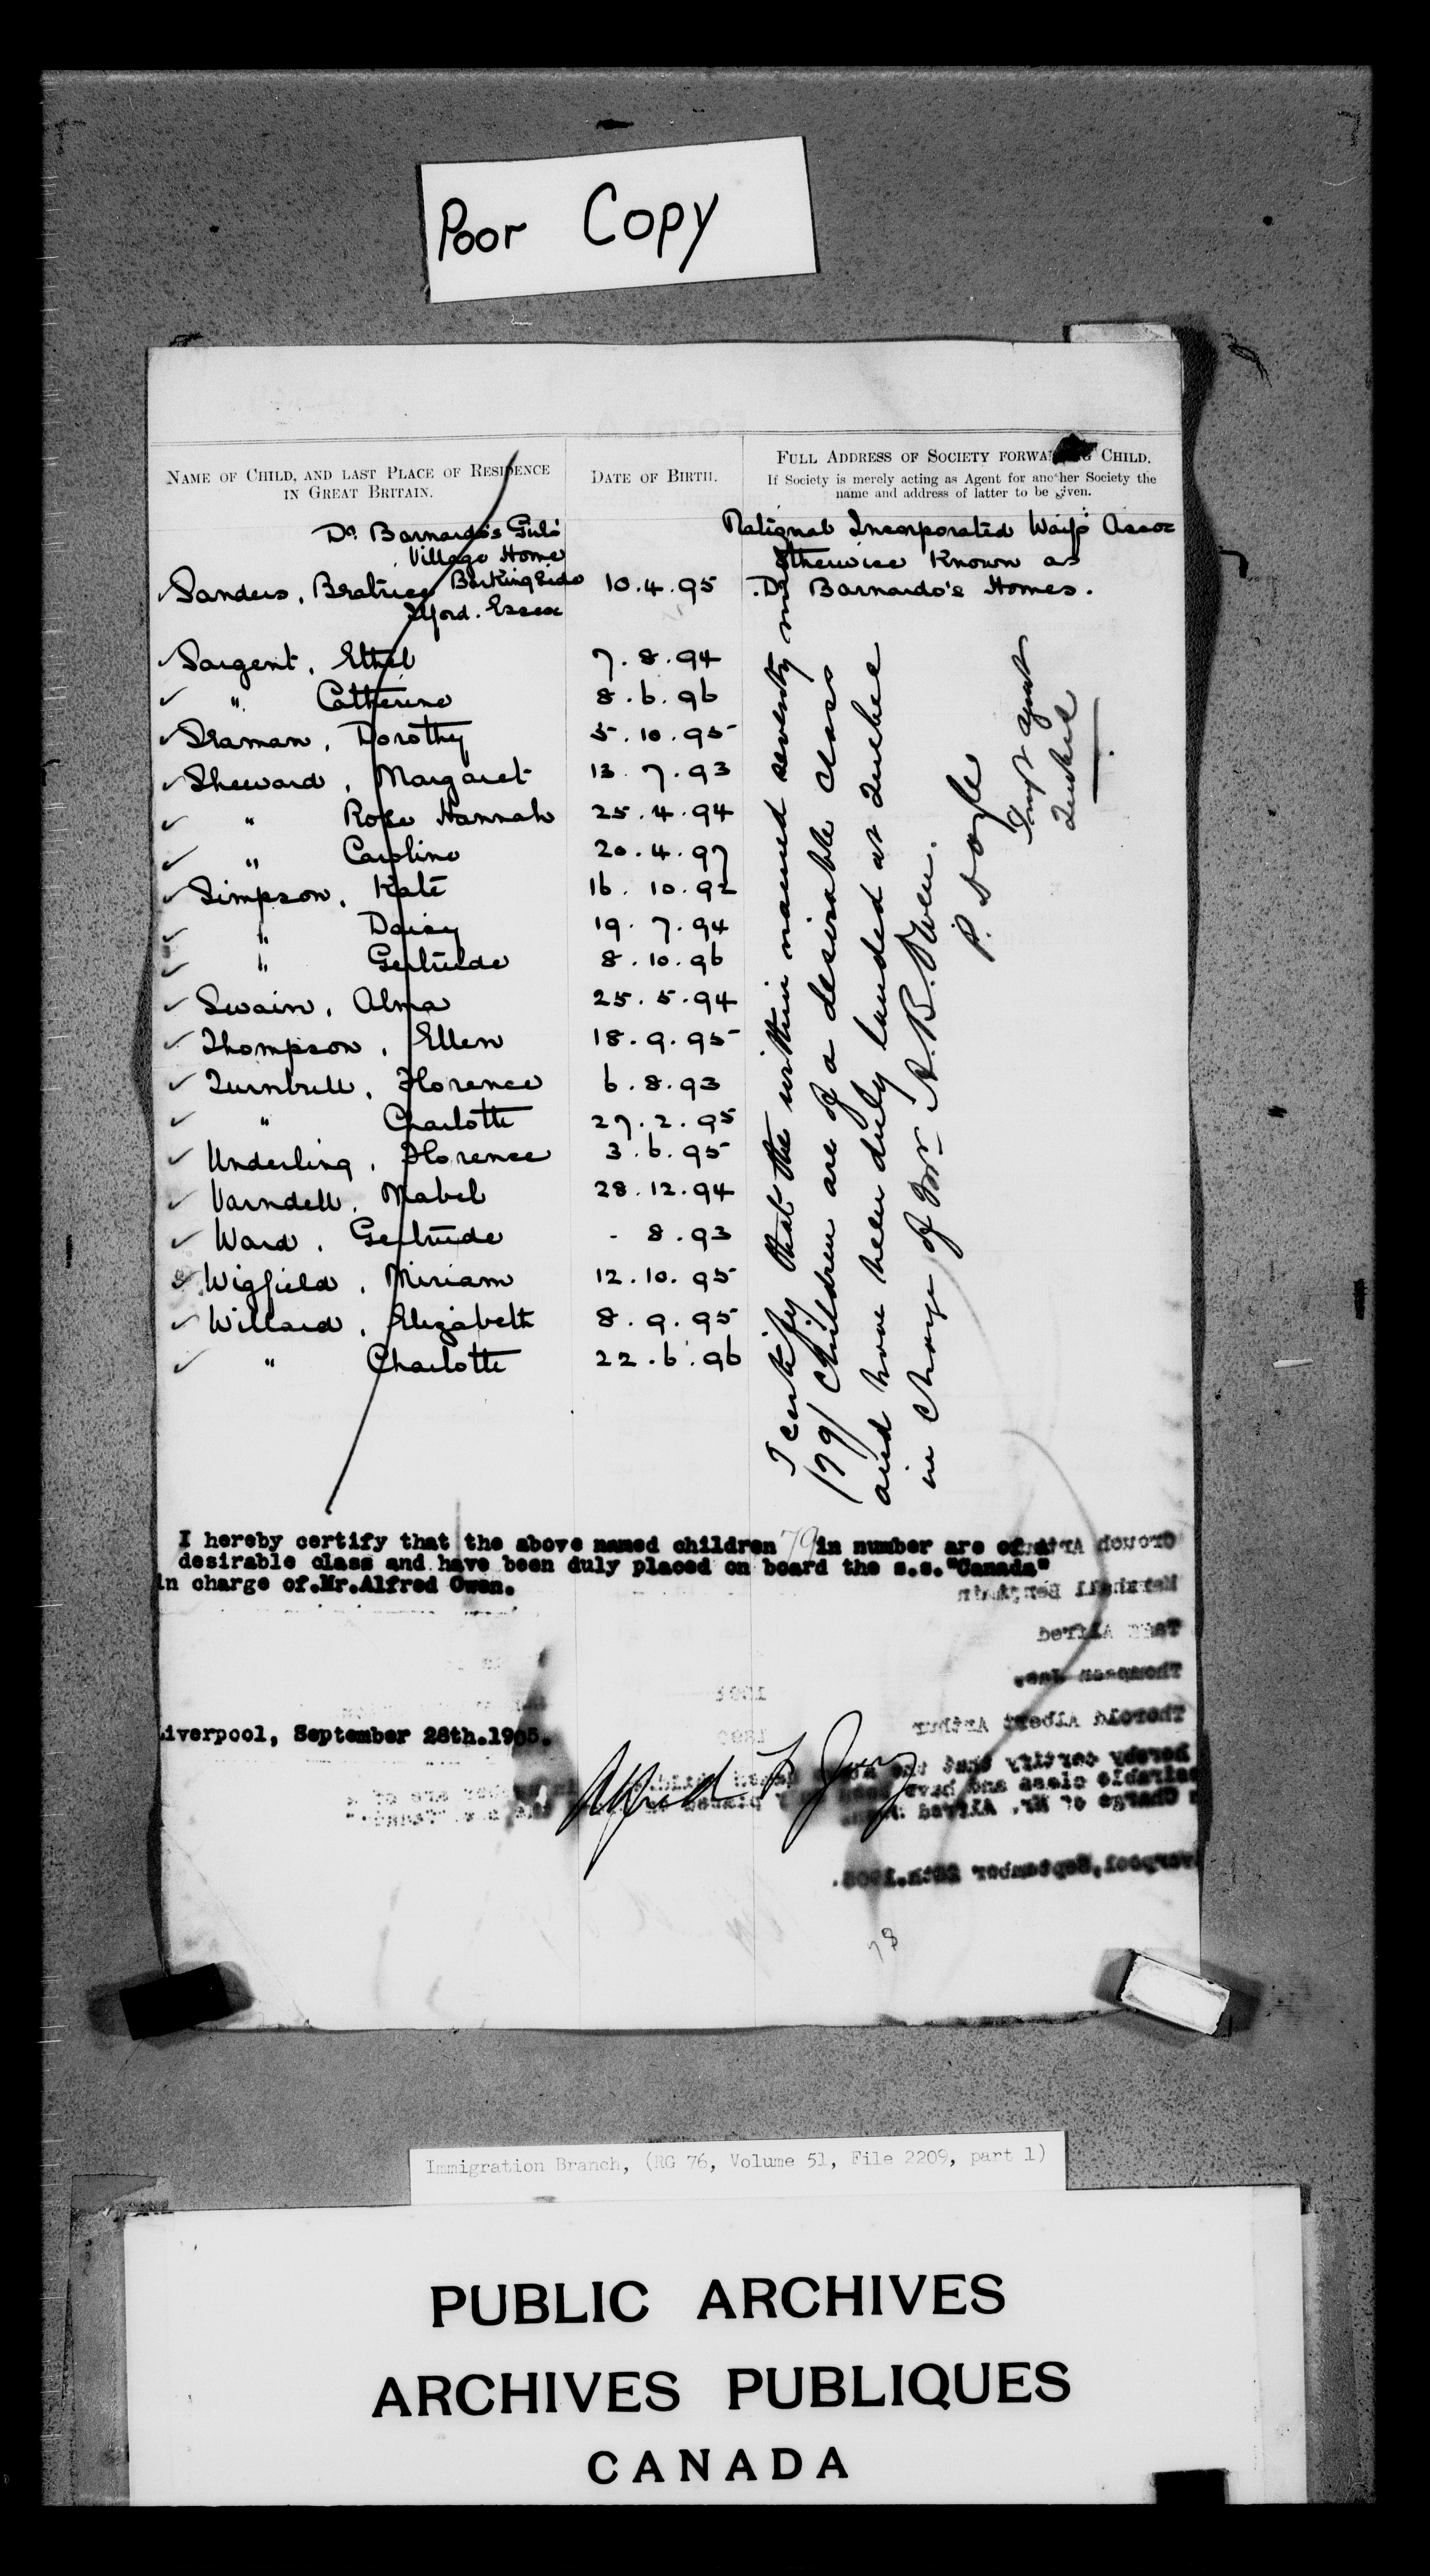 Poor Copy
NAME OF CHILD, AND LAST PLACE OF RESIDENCE
IN GREAT BRITAIN.
DATE OF BIRTH.
FULL ADDRESS OF SOCIETY FORWARDING CHILD.
If Society is merely acting as Agent for another Society the
name and address of latter to be given.
Dr. Barnardo's Girls'
Village Home
Barkingside
Ilford. Essex
National Incorporated Waifs' Assoc
otherwise Known as
Dr Barnardo's Homes.
Sanders, Beatrice 10.4.95
Sargent, Ethel 7.8.94
" Catherine 8.6.96
Seaman, Dorothy 5.10.95
Sheward, Margaret 13.7.93
" Rose Hannah 25.4.94
" Caroline 20.4.97
Simpson, Kate 16.10.92
" Daisy 19.7.94
" Gertrude 8.10.96
Swain, Alma 25.5.94
Thompson, Ellen 18.9.95
Turnbull, Florence 6.8.93
" Charlotte 27.2.95
Underling, Florence 3.6.95
Varndell, Mabel 28.12.94
Ward, Gertrude - 8.93
Wigfield, Miriam 12.10.95
Willard, Elizabeth 8.9.95
" Charlotte 22.6.96
I certify that the within named seventy nine
(79) children are of a desirable class
and have been duly landed at Quebec
in charge of Mr A.B. Owen.
P. Doyle
Agent
Quebec
I hereby certify that the above named children 79 in number are of a
desirable class and have been duly placed on board the s.s."Canada"
in charge of.Mr.Alfred Owen.
Liverpool, September 28th.1905.
Alfred L Jones
78
Immigration Branch, (RG 76, Volume 51, File 2209, part 1)
PUBLIC ARCHIVES
ARCHIVES PUBLIQUES
CANADA